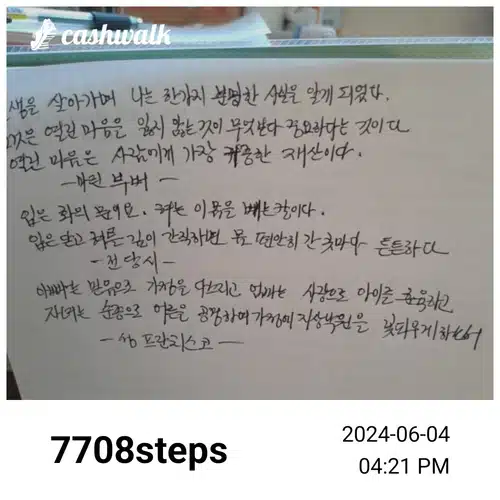 cashwalk
생을 살아가며 나는 한가지 분명한 사실을 알게 되었다.
그것은 열린 마음을 잃지 않는것이 무엇보다 중요하다는 것이다
열린 마음은 사람에게 가장 귀중한 재산이다.
— 마틴 부버 —
입은 화의 문이요. 혀는 이 몸을 베는 칼이다.
입을 닫고 혀를 깊이 간직하면 몸 편안히 간 곳마다 튼튼하다
- 전당시 -
아빠는 믿음으로 가정을 다스리고 엄마는 사랑으로 아이를 훈육하고
자녀는 순종으로 어른을 공경하여 가정에 지상낙원을 꽃피우게 하소서
- 성 프란치스코 —
7708steps
2024-06-04
04:21 PM